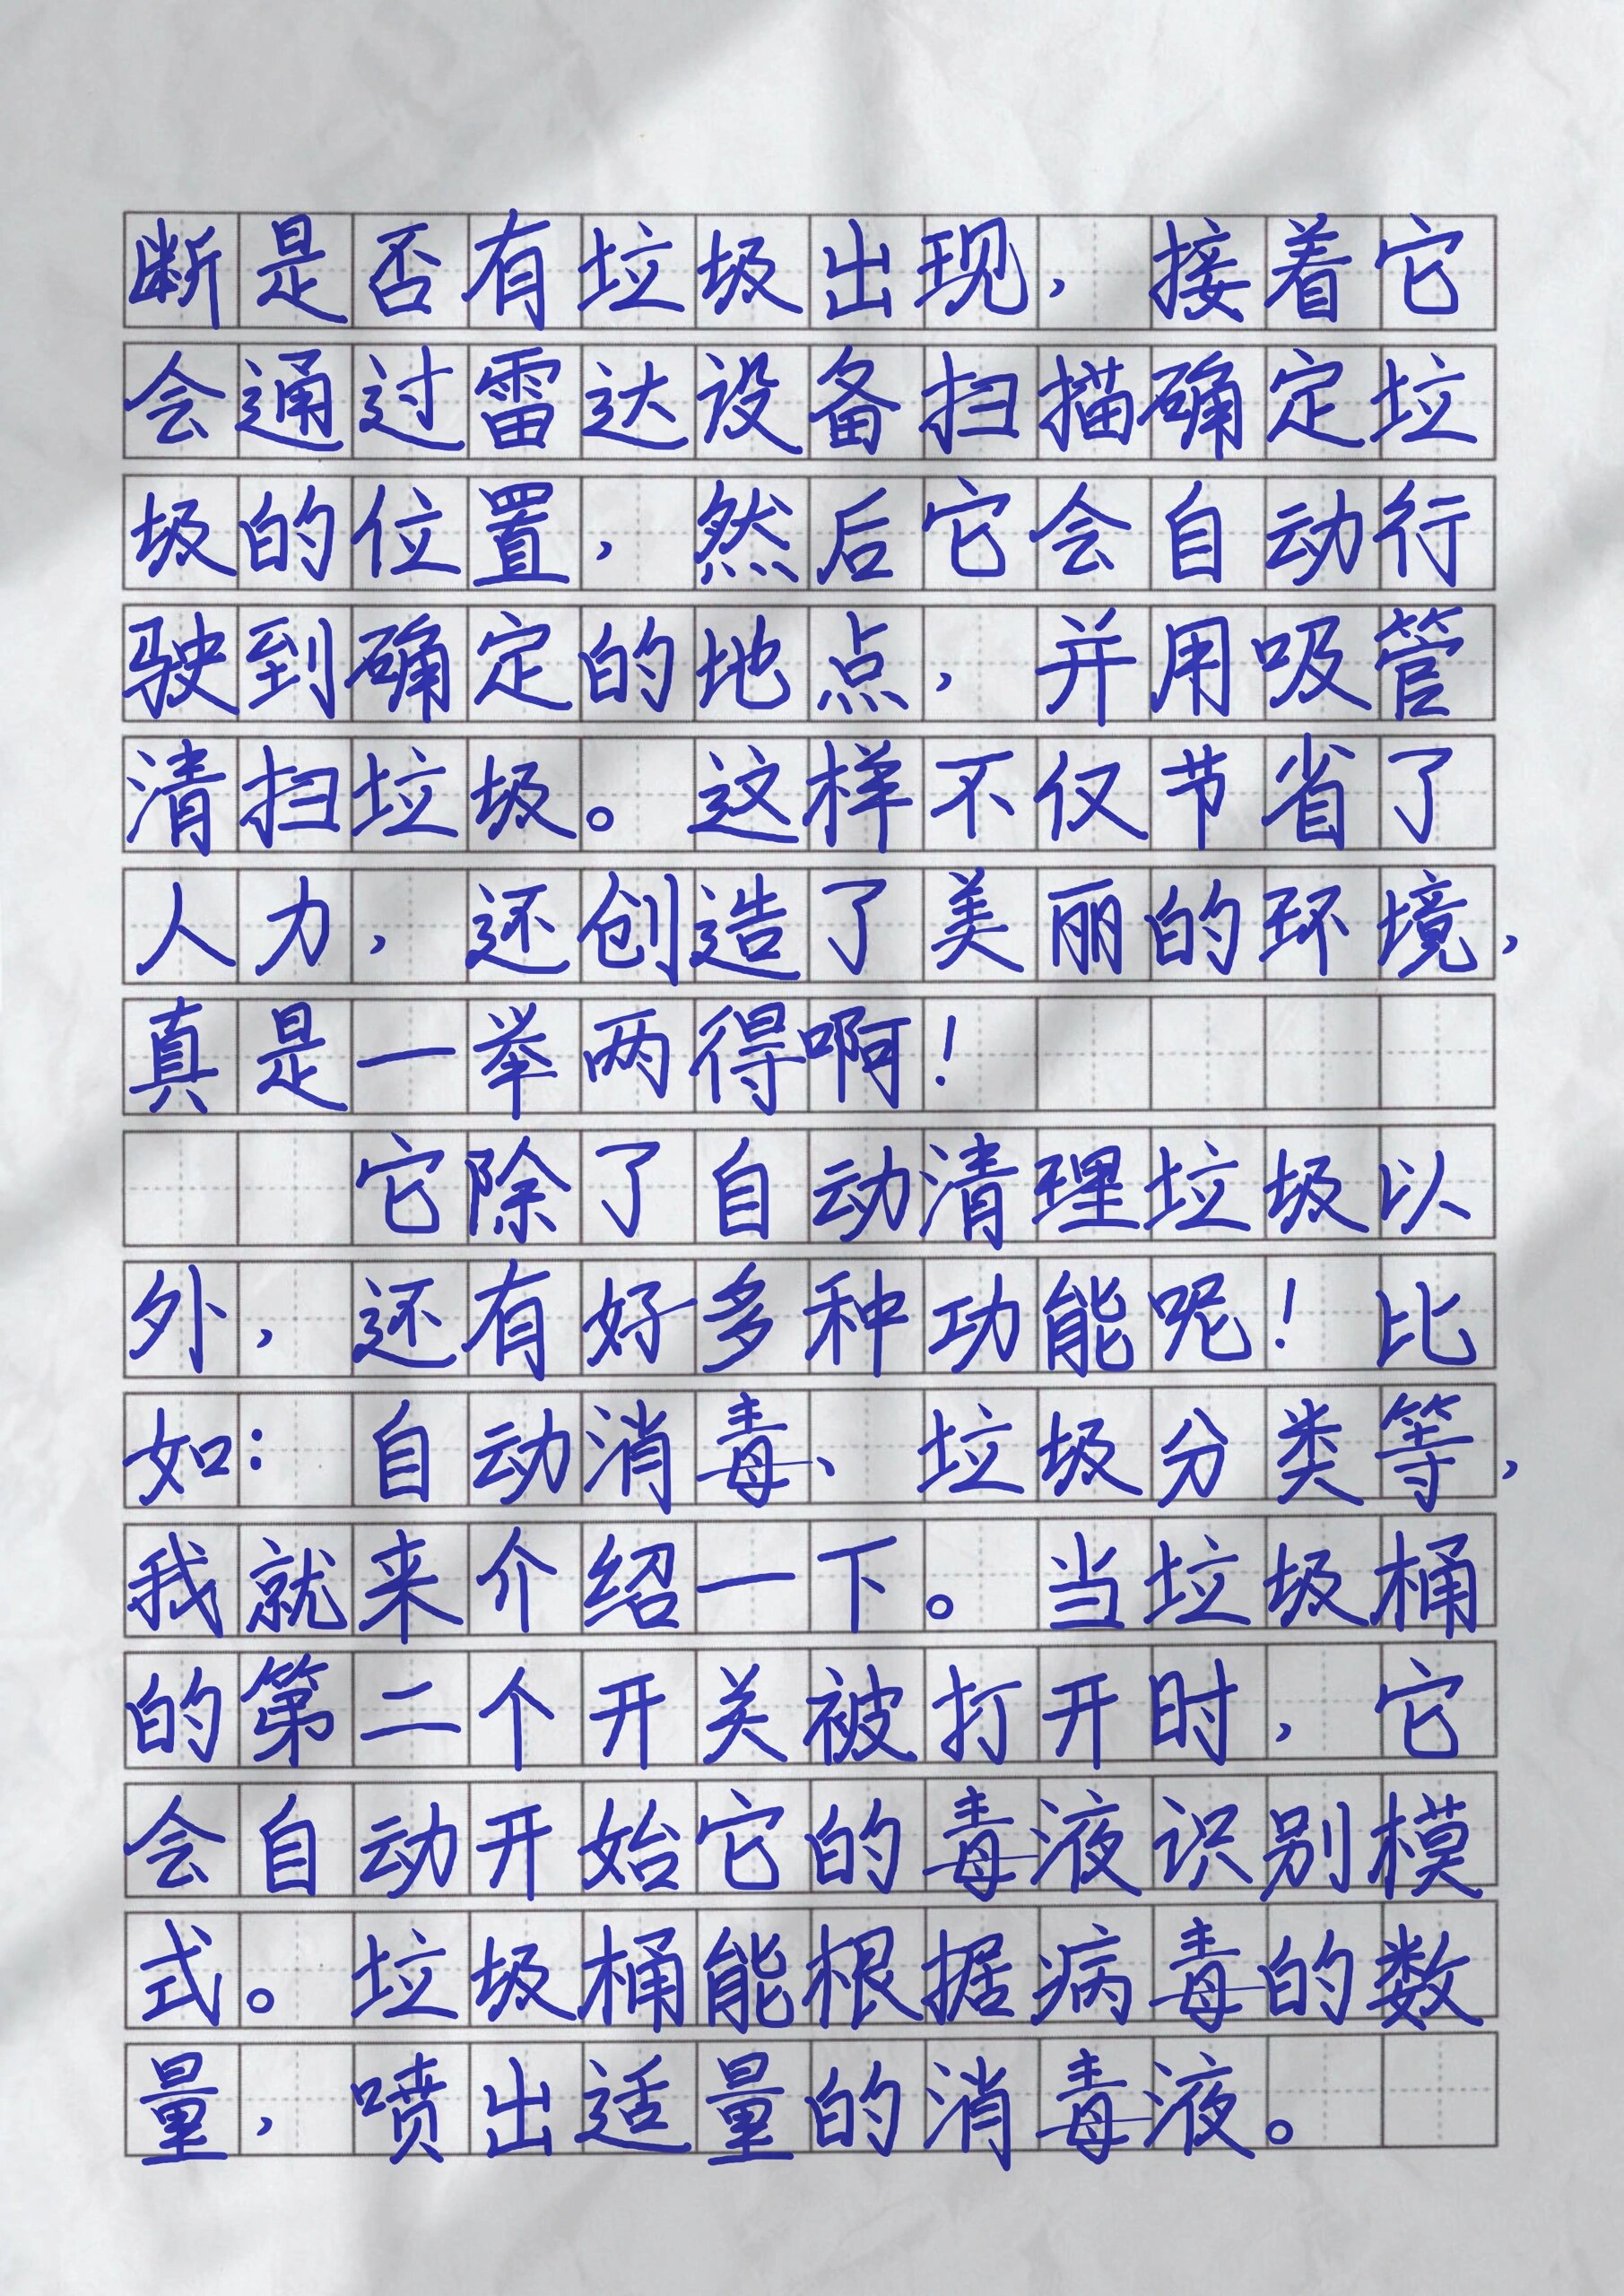 断是否有垃圾出现，接着它
会通过雷达设备扫描确定垃
圾的位置，然后它会自动行
驶到确定的地点，并用吸管
清扫垃圾。这样不仅节省了
人力，还创造了美丽的环境，
真是一举两得啊！
它除了自动清理垃圾以
外，还有好多种功能呢！比
如：自动消毒、垃圾分类等，
我就来介绍一下。当垃圾桶
的第二个开关被打开时，它
会自动开始它的毒液识别模
式。垃圾桶能根据病毒的数
量，喷出适量的消毒液。